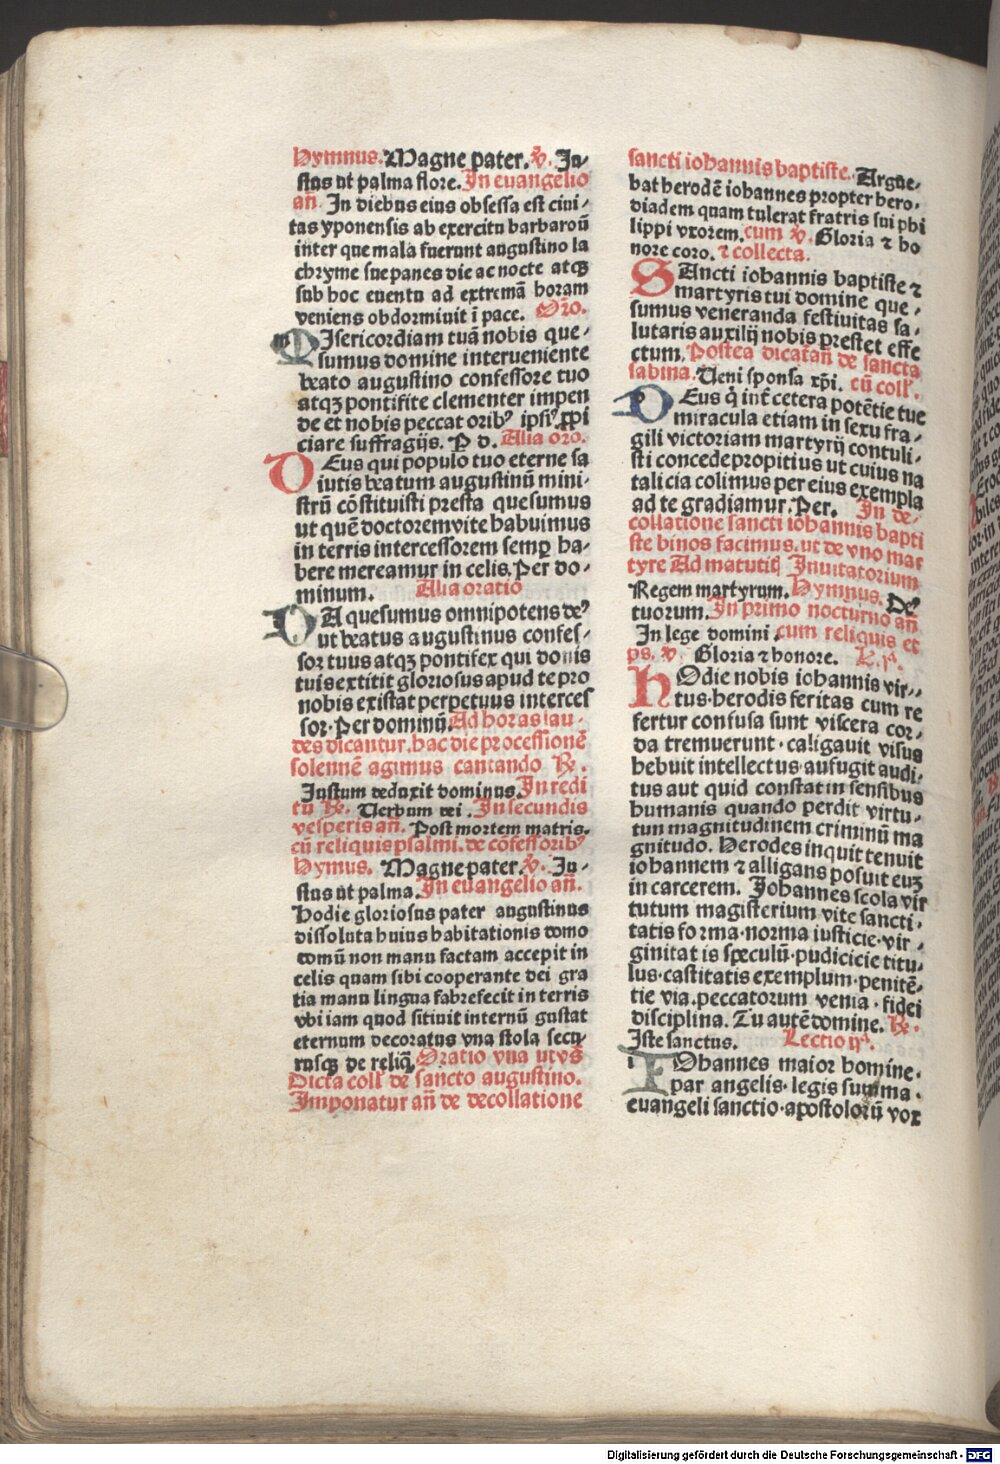 Hymnus. Magne pater. ℣. Iu-
stus ut palma flore. In euangelio
an̄. In diebus eius obsessa est ciui-
tas yponensis ab exercitu barbaroū
inter que mala fuerunt augustino la
chryme sue panes die ac nocte atqꝫ
sub hoc euentu ad extremā horam
veniens obdormiuit ī pace. Oro.
MIsericordiam tuā nobis que-
sumus domine interueniente
beato augustino confessore tuo
atqꝫ pontifite clementer impen
de et nobis peccatoribꝰ ipsiꝰ ꝓpi
ciare suffragijs. P d. Alia oro.
DEus qui populo tuo eterne sa
iutis beatum augustinū mini-
strū cōstituisti presta quesumus
ut quē doctorem vite habuimus
in terris intercessorem semꝑ ha-
bere mereamur in celis. Per do-
minum. Alia oratio
DA quesumus omnipotens deꝰ
ut beatus augustinus confes-
sor tuus atqꝫ pontifex qui donis
tuis extitit gloriosus apud te pro
nobis existat perpetuus interces
sor. Per dominū. Ad horas lau-
des dicantur. hac die processionē
solennē agimus cantando ℟.
Iustum deduxit dominus. In redi
tu ℟. Verbum dei. In secundis
vesperis an̄. Post mortem matris.
cū reliquis psalmi. de cōfessoribꝰ
Hymus. Magne pater. ℣. Iu-
stus ut palma. In euangelio an̄.
Hodie gloriosus pater augustinus
dissoluta huius habitationis domo
domū non manu factam accepit in
celis quam sibi cooperante dei gra
tia manu lingua fabrefecit in terris
vbi iam quod sitiuit internū gustat
eternum decoratus vna stola secu
rusqꝫ de reliq̄. Oratio vna utvs
Dicta coll̄ de sancto augustino.
Imponatur an̄ de decollatione
sancti iohannis baptiste. Argue-
bat herodē iohannes propter hero-
diadem quam tulerat fratris sui phi
lippi vxorem. cum ℣. Gloria ⁊ ho
nore coro. ⁊ collecta.
SAncti iohannis baptiste ⁊
martyris tui domine que-
sumus veneranda festiuitas sa-
lutaris auxilij nobis prestet effe
ctum. Postea dicat̄ an̄ de sancta
sabina. Veni sponsa xp̄i. cū coll̄.
DEus q̇ int̄ cetera potētie tue
miracula etiam in sexu fra-
gili victoriam martyrij contuli-
sti concede propitius ut cuius na
talicia colimus per eius exempla
ad te gradiamur. Per. In de-
collatione sancti iohannis bapti
ste binos facimus. ut de vno mar
tyre Ad matutiṇ Inuitatorium
Regem martyrum. Hymnus. Deꝰ
tuorum. In primo nocturno an̄
In lege domini. cum reliquis et
ps. ℣. Gloria ⁊ honore. L. jᵃ.
HOdie nobis iohannis vir-
tus. herodis feritas cum re
fertur consusa sunt viscera cor-
da tremuerunt. caligauit visus
hebuit intellectus. aufugit audi-
tus aut quid constat in sensibus
humanis quando perdit virtu-
tun magnitudinem criminū ma
gnitudo. Herodes inquit tenuit
iohannem ⁊ alligans posuit euꝫ
in carcerem. Iohannes scola vir
tutum magisterium vite sancti-
tatis forma. norma iusticie. vir-
ginitatis speculū. pudicicie titu-
lus. castitatis exemplum. penitē-
tie via. peccatorum venia. fidei
disciplina. Tu autē domine. ℟.
Iste sanctus. Lectio ijᵃ.
IOhannes maior homine.
par angelis. legis summa.
euangeli sanctio. apostolorū vox
Digitalisierung gefördert durch die Deutsche Forschungsgemeinschaft - DFG